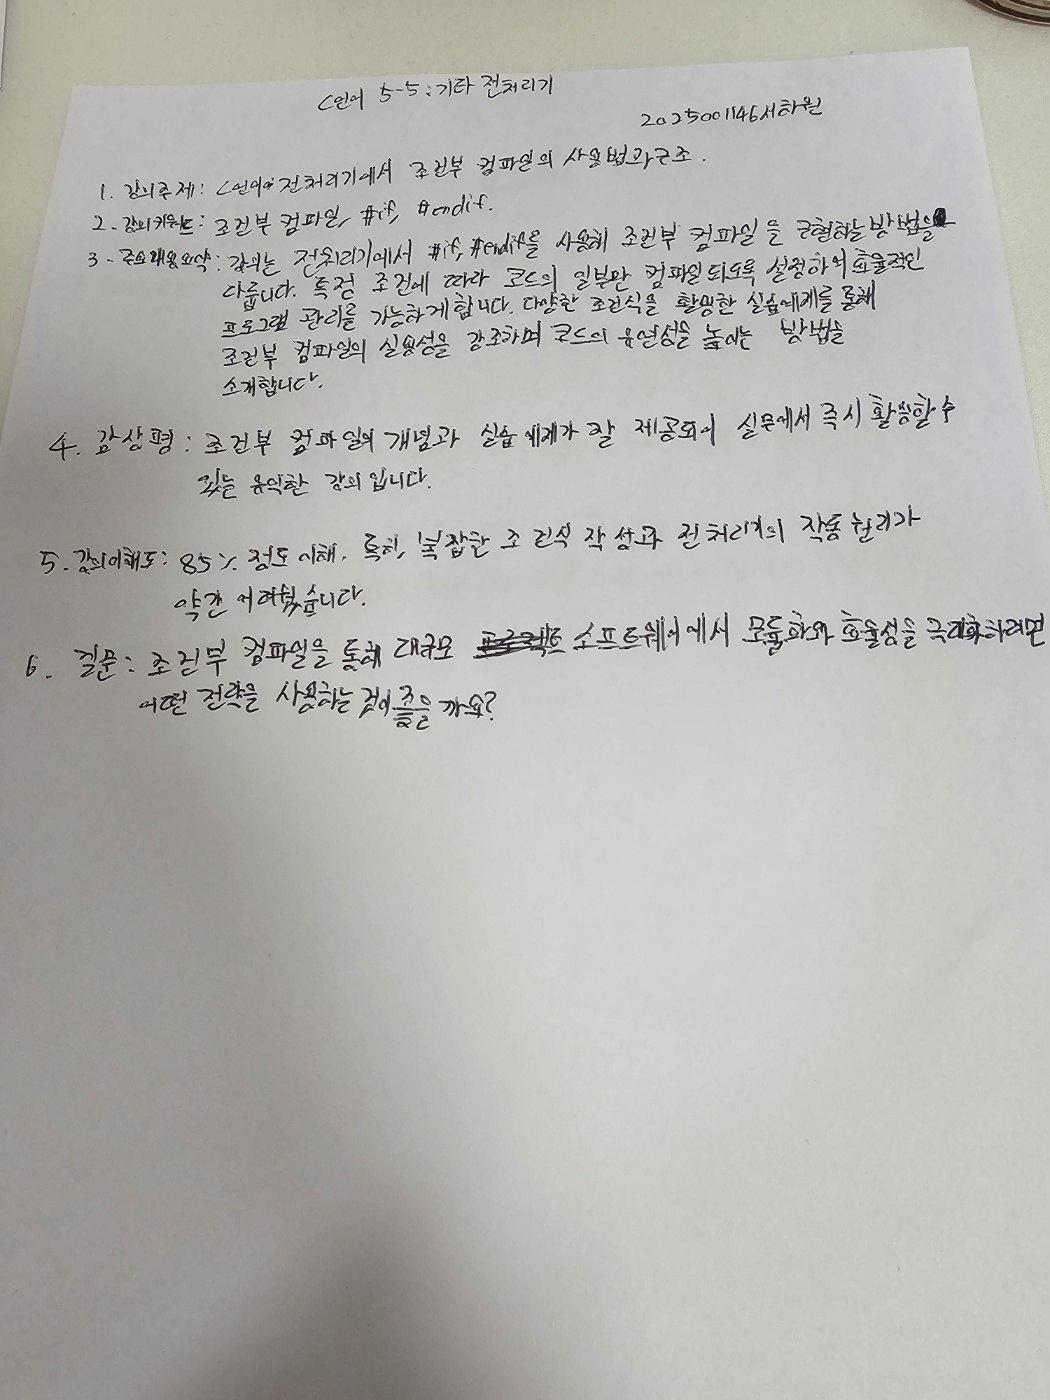 C언어 5-5: 기타 전처리기
2025001146 서하원
1. 강의주제: C언어의 전처리기에서 조건부 컴파일의 사용법과 구조.
2. 강의키워드: 조건부 컴파일, #if, #endif.
3. 주요내용요약: 강의는 전처리기에서 #if, #endif를 사용해 조건부 컴파일을 구현하는 방법을
다룹니다. 특정 조건에 따라 코드의 일부만 컴파일되도록 설정하여 효율적인
프로그램 관리를 가능하게 합니다. 다양한 조건식을 활용한 실습예제를 통해
조건부 컴파일의 실용성을 강조하며 코드의 유연성을 높이는 방법을
소개합니다.
4. 감상평: 조건부 컴파일의 개념과 실습 예제가 잘 제공되어 실무에서 즉시 활용할 수
있는 유익한 강의 입니다.
5. 강의이해도: 85% 정도 이해. 특히, 복잡한 조건식 작성과 전처리기의 작동 원리가
약간 어려웠습니다.
6. 질문: 조건부 컴파일을 통해 대규모 소프트웨어에서 모듈화와 효율성을 극대화하려면
어떤 전략을 사용하는 것이 좋을까요?